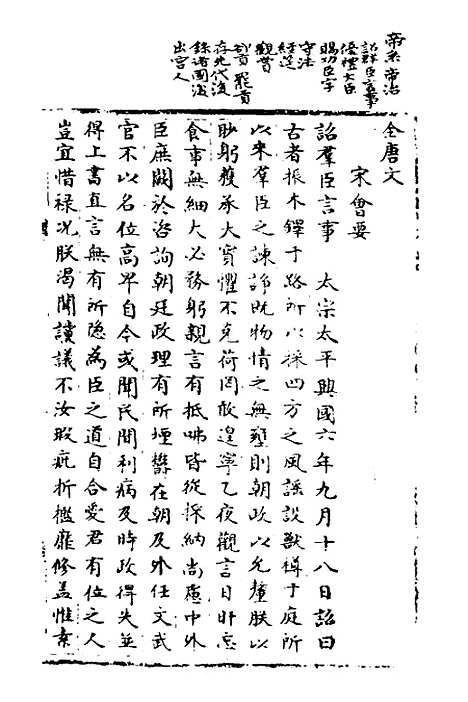 帝系 帝治
詔群臣言事
優禮大臣
賜功臣字
守法
經筵
觀賞
卻貢 罷貢
存先代後
錄諸國後
出宮人
全唐文
宋會要
詔羣臣言事 太宗太平興國六年九月十八日詔曰
古者振木鐸于路所以採四方之風謠設獸樽于庭所
以來羣臣之諫諍既物情之無壅則朝政以允釐朕以
眇躬獲承大寶懼不克荷罔敢遑寧乙夜觀言日旰忘
食事無細大必務躬親言有抵啎皆從採納尚慮中外
臣庶闕於咨詢朝廷政理有所堙鬱在朝及外任文武
官不以名位高卑自今或聞民間利病及時政得失並
得上書直言無有所隱為臣之道自合愛君有位之人
豈宜惜祿况朕渴聞讜議不汝瑕疵折檻靡修蓋惟素